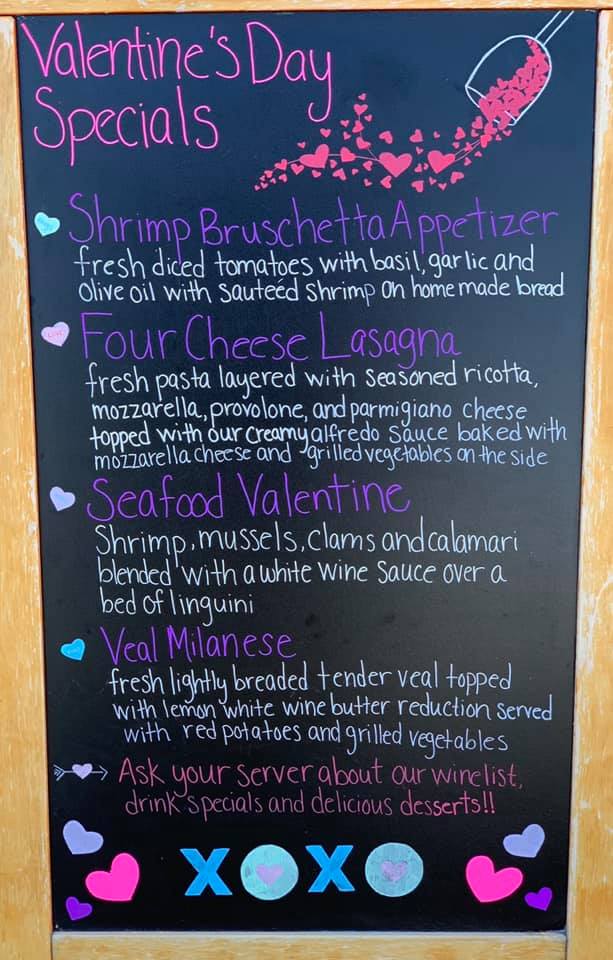 Valentine's Day
Specials
Shrimp Bruschetta Appetizer
fresh diced tomatoes with basil, garlic and
olive oil with sauteéd shrimp on homemade bread
Four Cheese Lasagna
fresh pasta layered with seasoned ricotta,
mozzarella, provolone, and parmigiano cheese
topped with our creamy alfredo sauce baked with
mozzarella cheese and grilled vegetables on the side
Seafood Valentine
Shrimp, mussels, clams and calamari
blended with a white wine sauce over a
bed of linguini
Veal Milanese
fresh lightly breaded tender veal topped
with lemon white wine butter reduction served
with red potatoes and grilled vegetables
Ask your server about our winelist,
drink specials and delicious desserts!!
XOXO